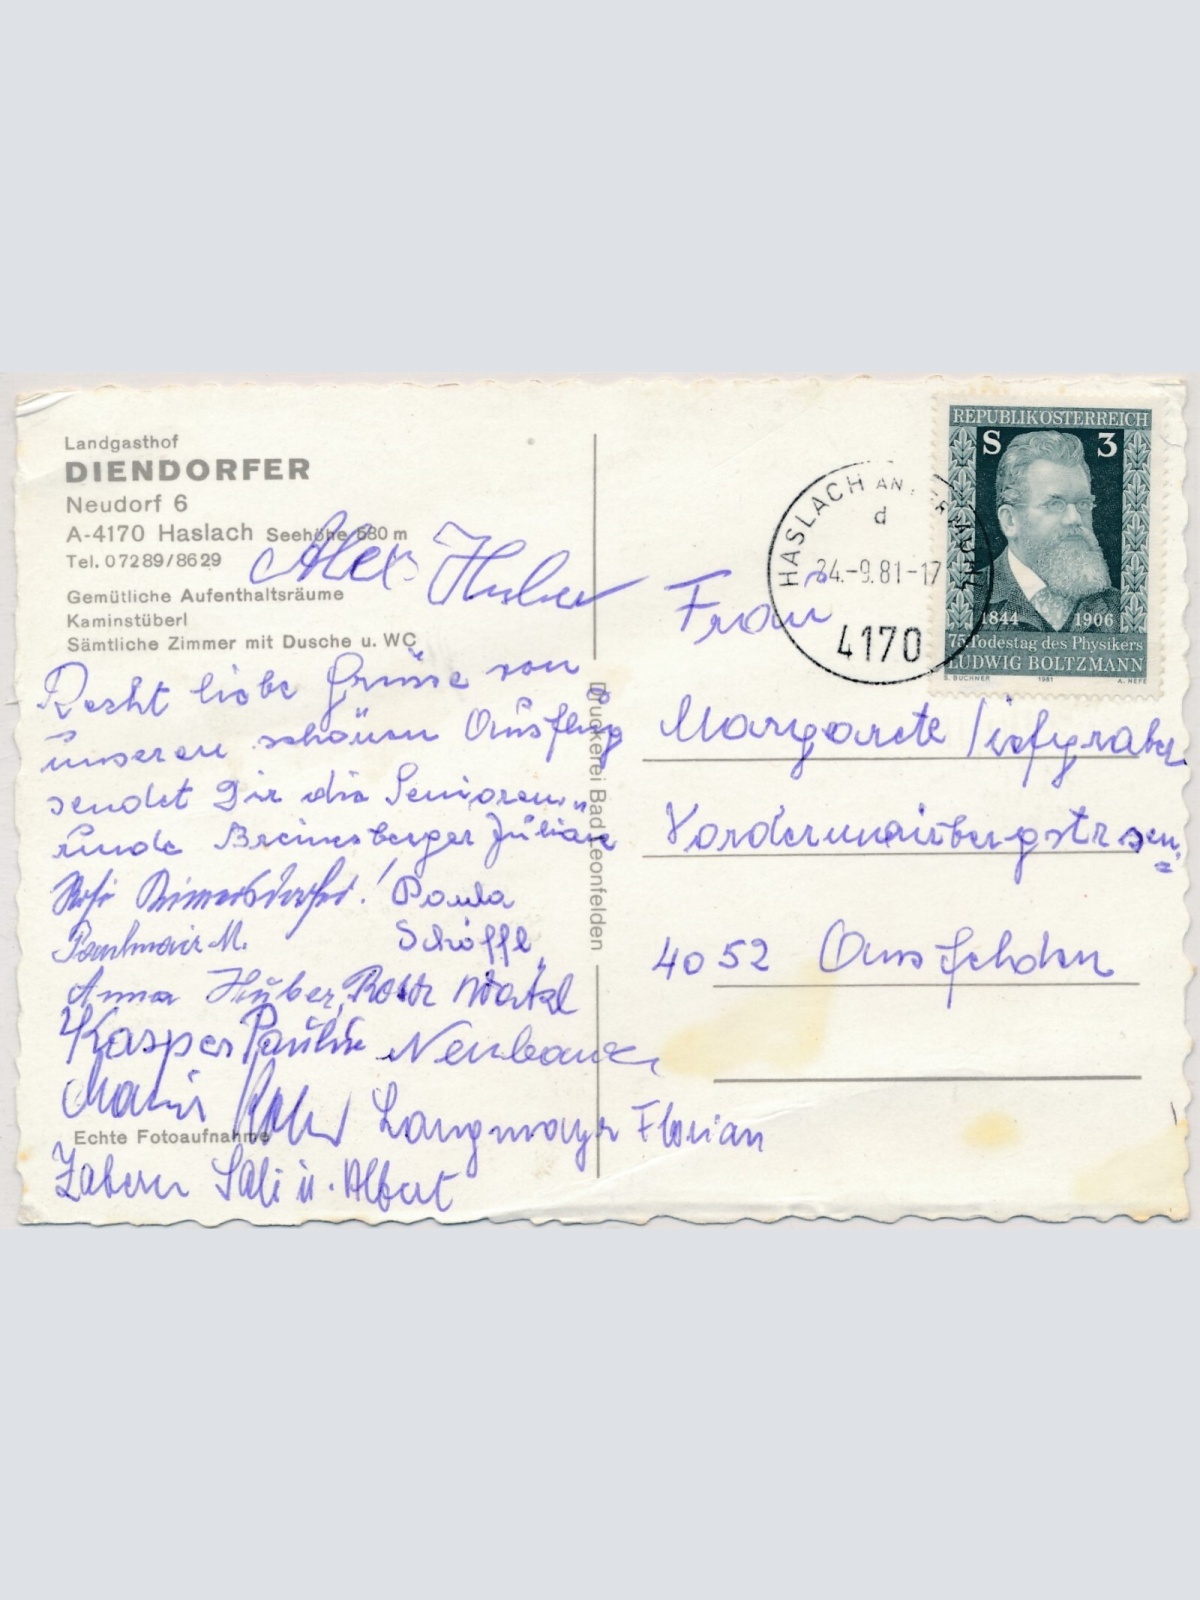 Landgasthof
DIENDORFER
Neudorf 6
A-4170 Haslach Seehöhe 580 m
Tel. 07289/8629
Gemütliche Aufenthaltsräume
Kaminstüberl
Sämtliche Zimmer mit Dusche u. WC
Alex Huber
Recht liebe Grüsse von
unseren schönen Ausflug
sendet Dir die Senioren"
runde Breinesberger Juliane
Rosi
Paula
M.
Schöffl,
Anna Huber, Rosa
Kasper Pauline Neubauer
Maria
Langmayr Florian
Echte Fotoaufnahme
Zabern Sali u. Albert
Druckerei Bad Leonfelden
REPUBLIK ÖSTERREICH
S 3
1844 1906
75. Todestag des Physikers
LUDWIG BOLTZMANN
S. BUCHNER 1981 A. HEFE
HASLACH AN DER MÜHL
d
24.-9.81-17
4170
Frau
Margarete Tiefgraber
4052 Ansfelden